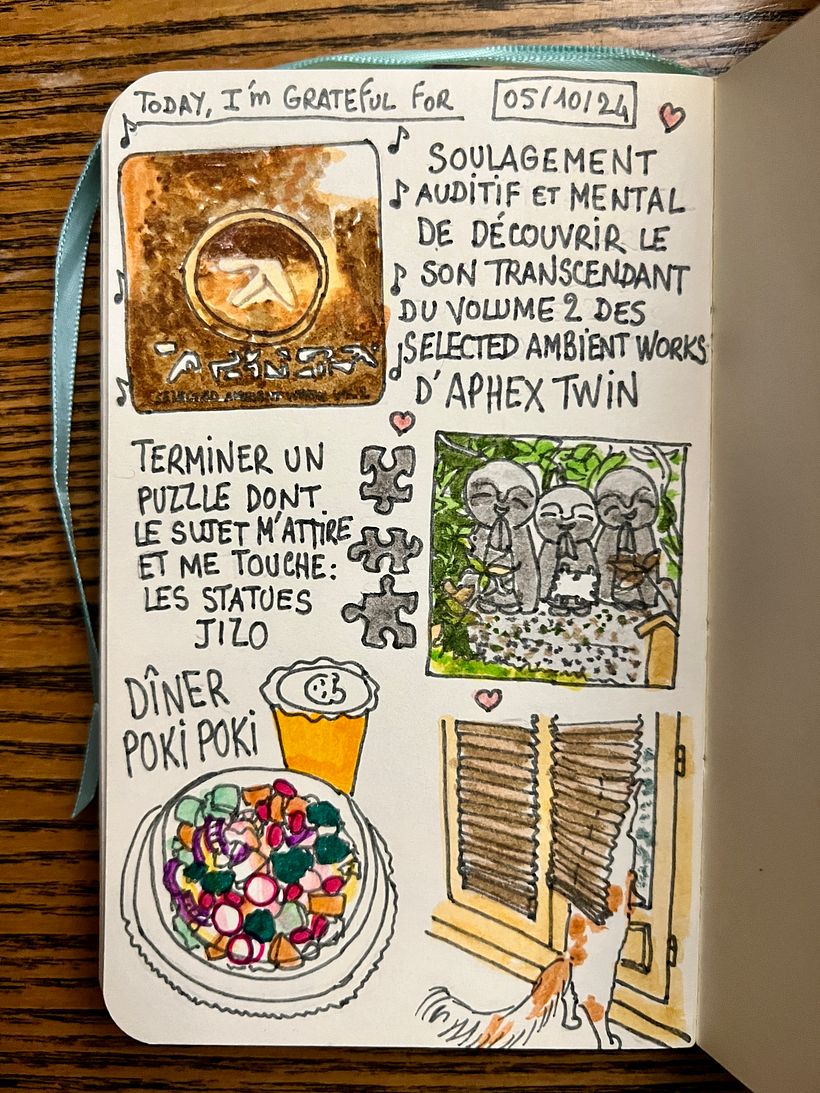 TODAY, I'm GRATEFUL FOR
05/10/24
SOULAGEMENT
AUDITIF ET MENTAL
DE DÉCOUVRIR LE
SON TRANSCENDANT
DU VOLUME 2 DES
SELECTED AMBIENT WORKS
D'APHEX TWIN
SELECTED AMBIENT WORKS
TERMINER UN
PUZZLE DONT
LE SUJET M'ATTIRE
ET ME TOUCHE:
LES STATUES
JIZO
DÎNER
POKI POKI